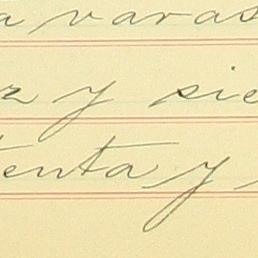 a varas
z y sie
tenta y